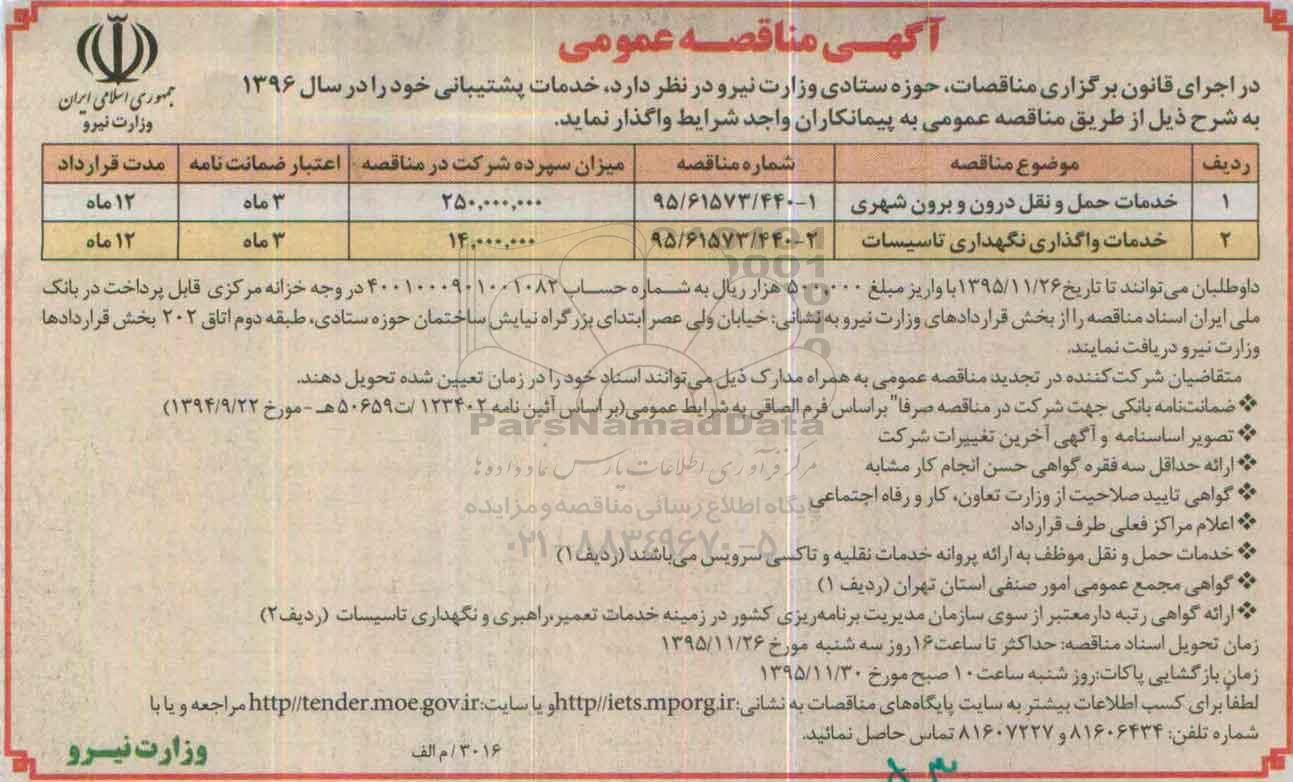 آگهی مناقصه عمومی
جمهوری اسلامی ایران
وزارت نیرو
در اجرای قانون برگزاری مناقصات، حوزه ستادی وزارت نیرو در نظر دارد، خدمات پشتیبانی خود را در سال ۱۳۹۶
به شرح ذیل از طریق مناقصه عمومی به پیمانکاران واجد شرایط واگذار نماید.
ردیف موضوع مناقصه شماره مناقصه میزان سپرده شرکت در مناقصه اعتبار ضمانت نامه مدت قرارداد
۱ خدمات حمل و نقل درون و برون شهری ۹۵/۶۱۵۷۳/۴۴۰-۱ ۲۵۰,۰۰۰,۰۰۰ ۳ ماه ۱۲ ماه
۲ خدمات واگذاری نگهداری تاسیسات ۹۵/۶۱۵۷۳/۴۴۰-۲ ۱۴,۰۰۰,۰۰۰ ۳ ماه ۱۲ ماه
داوطلبان می‌توانند تا تاریخ ۱۳۹۵/۱۱/۲۶ با واریز مبلغ ۵۰۰,۰۰۰ هزار ریال به شماره حساب ۴۰۰۱۰۰۰۹۰۱۰۰۱۰۸۲ در وجه خزانه مرکزی قابل پرداخت در بانک
ملی ایران اسناد مناقصه را از بخش قراردادهای وزارت نیرو به نشانی: خیابان ولی عصر ابتدای بزرگراه نیایش ساختمان حوزه ستادی، طبقه دوم اتاق ۲۰۲ بخش قراردادها
وزارت نیرو دریافت نمایند.
متقاضیان شرکت‌کننده در تجدید مناقصه عمومی به همراه مدارک ذیل می‌توانند اسناد خود را در زمان تعیین شده تحویل دهند.
❖ ضمانت‌نامه بانکی جهت شرکت در مناقصه صرفا" براساس فرم الصاقی به شرایط عمومی(بر اساس آئین نامه ۱۲۳۴۰۲ /ت۵۰۶۵۹هـ - مورخ ۱۳۹۴/۹/۲۲)
❖ تصویر اساسنامه و آگهی آخرین تغییرات شرکت
❖ ارائه حداقل سه فقره گواهی حسن انجام کار مشابه
❖ گواهی تایید صلاحیت از وزارت تعاون، کار و رفاه اجتماعی
❖ اعلام مراکز فعلی طرف قرارداد
❖ خدمات حمل و نقل موظف به ارائه پروانه خدمات نقلیه و تاکسی سرویس می‌باشند (ردیف ۱)
❖ گواهی مجمع عمومی امور صنفی استان تهران (ردیف ۱)
❖ ارائه گواهی رتبه دار معتبر از سوی سازمان مدیریت برنامه‌ریزی کشور در زمینه خدمات تعمیر،راهبری و نگهداری تاسیسات (ردیف۲)
زمان تحویل اسناد مناقصه: حداکثر تا ساعت۱۶روز سه شنبه مورخ ۱۳۹۵/۱۱/۲۶
زمان بازگشایی پاکات:روز شنبه ساعت ۱۰ صبح مورخ ۱۳۹۵/۱۱/۳۰
لطفاً برای کسب اطلاعات بیشتر به سایت پایگاه‌های مناقصات به نشانی:http//iets.mporg.ir و یا سایت:http//tender.moe.gov.ir مراجعه و یا با
شماره تلفن: ۸۱۶۰۶۴۳۴ و ۸۱۶۰۷۲۲۷ تماس حاصل نمائید.
۳۰۱۶/م الف
وزارت نیرو
ParsNamadData
مرکز فرآوری اطلاعات پارس نماد داده ها
پایگاه اطلاع رسانی مناقصه و مزایده
۰۲۱-۸۸۳۴۹۶۷۰-۵